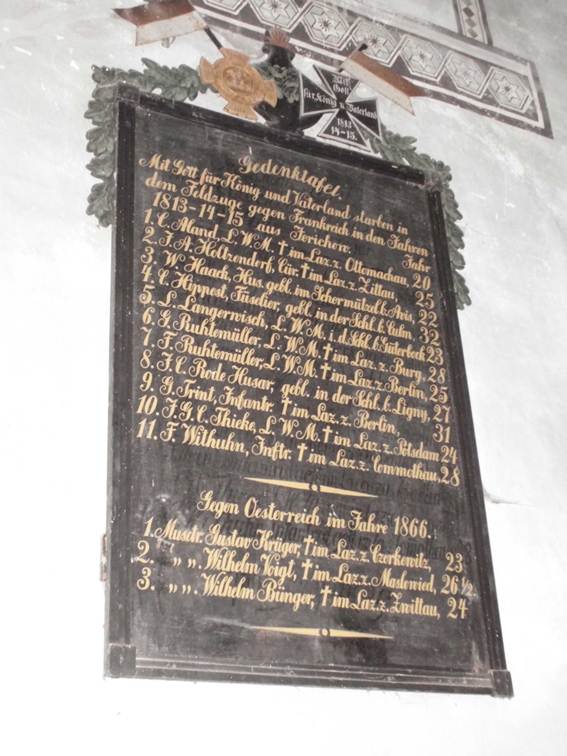 Mit
Gott
für König u Vaterland
1813
14-15.
Gedenktafel.
Mit Gott für König und Vaterland starben in
dem Feldzuge gegen Frankreich in den Jahren
1813-14-15 aus Jerichow. Jahr
1. C. Aland, L. W. M. † im Laz. z. Ottomachau, 20
2. F. A. Holtzendorf, Cür. † im Laz. z. Zittau, 25
3. W. Haack, Hus. gebl. im Scharmützel b. Aris, 22
4. C. Hippost, Füselier, gebl. in der Schl. b. Culm, 32
5. L. Langerwisch, L. W. M. i. d. Schl. b. Güterbock 23
6. G. Ruhlemüller, L. W. M. † im Laz. z. Burg, 28
7. F. Ruhlemüller, L. W. M. † im Laz. z. Berlin, 25
8. J. C. Rode Husar, gebl. in der Schl. b. Ligny, 27
9. G. Trint, Infantr. † im Laz. z. Berlin, 31
10. J. G. C. Thieke, L. W. M. † im Laz. z. Potsdam 24
11. F. Wilhuhn, Inftr. † im Laz. z. Commothau, 28
Gegen Oesterreich im Jahre 1866.
1. Musctr. Gustav Krüger, † im Laz. z. Czerkewitz, 23
2. " " Wilhelm Voigt, † im Laz. z. Maslowied, 26 ½
3. " " Wilhelm Bünger, † im Laz. z. Zwittau, 24